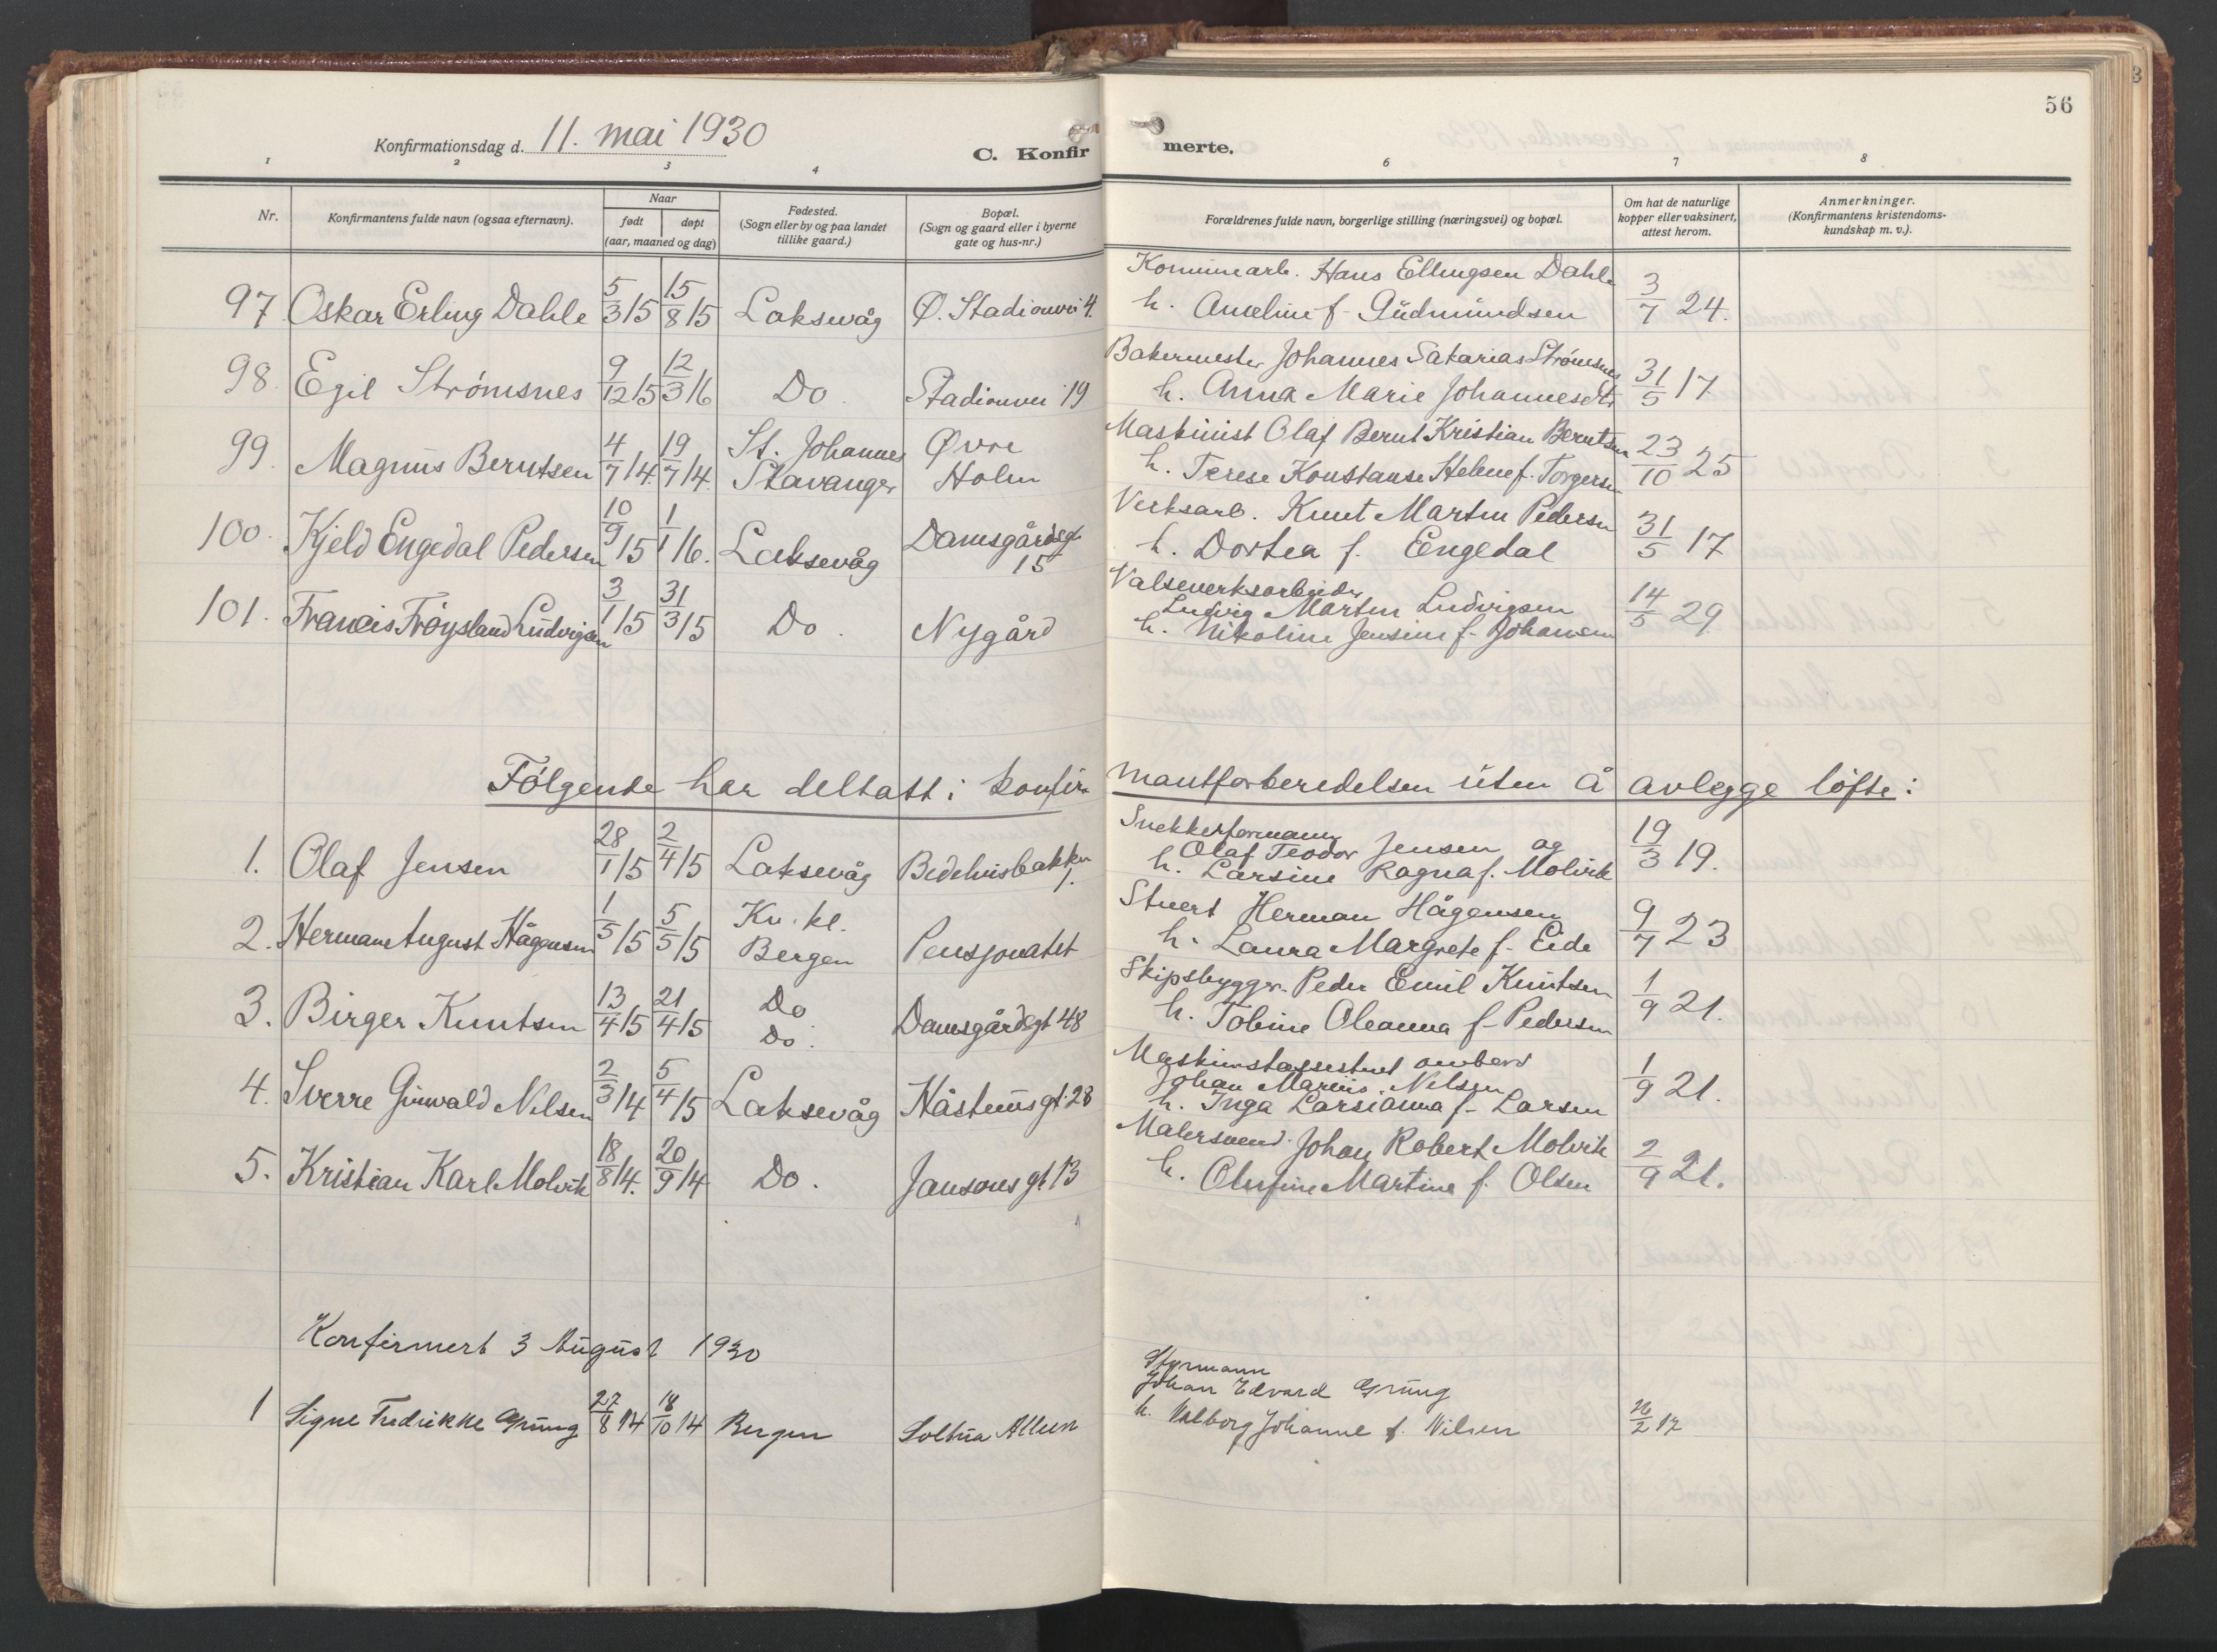 56
Konfirmationsdag d. 11. mai 1930
C. Konfirmerte.
1 2 3 4 6 7 8
Nr.
Konfirmantens fulde navn (ogsaa efternavn).
Naar
født døpt
(aar, maaned og dag)
Fødested.
(Sogn eller by og paa landet
tillike gaard.)
Bopæl.
(Sogn og gaard eller i byerne
gate og hus-nr.)
Forældrenes fulde navn, borgerlige stilling (næringsvei) og bopæl.
Om hat de naturlige
kopper eller vaksinert,
attest herom.
Anmerkninger.
(Konfirmantens kristendoms-
kundskap m. v.).
97 Oskar Erling Dahle 5/3 15 15/8 15 Laksevåg Ø. Stadionvei 4.
Kommunearb. Hans Ellingsen Dahle
h. Anseline f. Gudmundsen 3/7 24.
98. Egil Strømsnes 9/12 15 12/3 16 Do. Stadionvei 19
Bakermester Johannes Sakarias Strømsnes
h. Anna Marie Johannesdtr 31/5 17
99. Magnus Berntsen 4/7 14. 19/7 14. St. Johannes Stavanger Øvre Holen
Maskinist Olaf Bernt Kristian Berntsen
h. Terese Konstanse Helene f. Torgersen 23/10 25
100. Kjeld Engedal Pedersen 10/9 15 1/1 16. Laksevåg Damsgårdsgt 15
Verksarb. Knut Martin Pedersen
h. Dortea f. Engedal 31/5 17
101. Francis Frøysland Ludvigsen 3/1 15 31/3 15 Do. Nygård
Valseverksarbeider
Ludvig Martin Ludvigsen
h. Nikoline Jensine f. Johansen 14/5 29.
Følgende har deltatt i konfirmantforberedelsen uten å avlegge løfte:
1. Olaf Jensen 28/1 15 2/4 15 Laksevåg Bedehusbakken 1.
Snekkerformann
Olaf Teodor Jensen og
h. Larsine Ragna f. Molvik 19/3 19.
2. Herman August Hågensen 1/5 15 5/5 15 Kv. kl. Bergen Pensjonatet
Stuert Herman Hågensen
h. Laura Margrete f. Eide 9/7 23
3. Birger Knutsen 13/4 15 21/4 15 Do Do. Damsgårdsgt 48
Skipsbygger Peder Emil Knutsen
h. Tobine Oleanna f. Pedersen 1/9 21.
4. Sverre Gunvald Nilsen 2/3 14 5/4 15 Laksevåg Håsteinsgt. 28
Maskinistassistent ombord
Johan Marius Nilsen
h. Inga Larsianna f. Larsen 1/9 21.
5. Kristian Karl Molvik 18/8 14. 20/9 14 Do. Jansons gt 13
Malersvend. Johan Robert Molvik
h. Olufine Martine f. Olsen 2/9 21.
Konfirmert 3 August 1930
1 Signe Fredrikke Grung 27/8 14 18/10 14 Bergen Soltua Alleen
Styrmann
Johan Edvard Grung
h. Valborg Johanne f. Nilsen 26/2 17